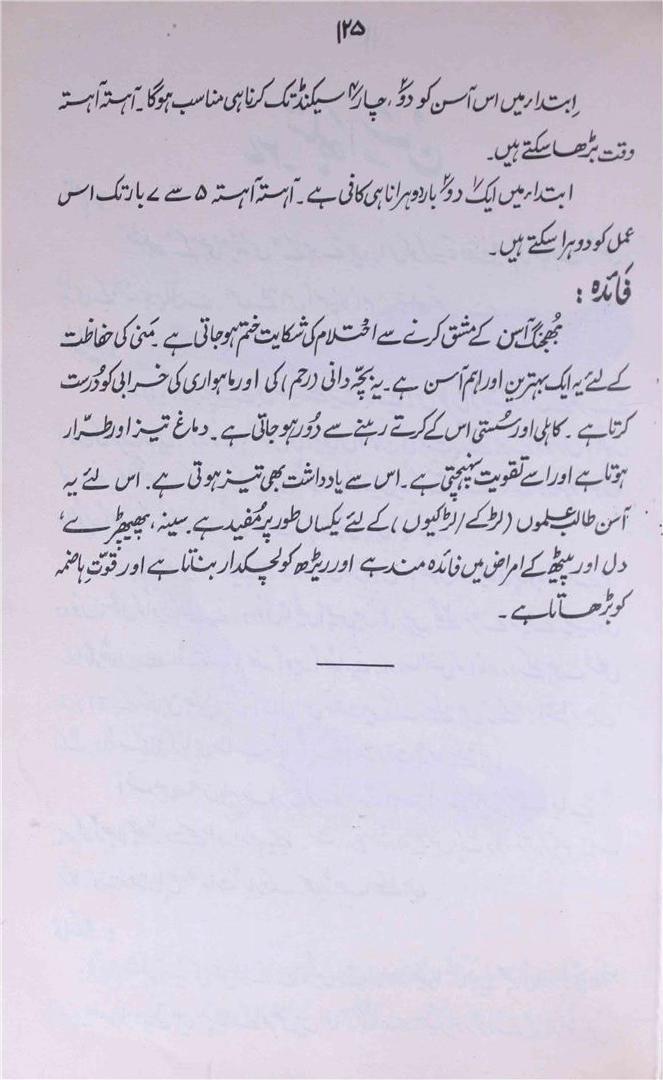 ۱۲۵
اِبتداء میں اس آسن کو دو۲، چار۴ سیکنڈ تک کرنا ہی مناسب ہوگا۔ آہستہ آہستہ
وقت بڑھا سکتے ہیں۔
ابتداء میں ایک۱ دو۲ بار دوہرانا ہی کافی ہے۔ آہستہ آہستہ ۵ سے ۷ بار تک اس
عمل کو دوہرا سکتے ہیں۔
فائدہ :
بھُجنگ آسن کے مشق کرنے سے احتلام کی شکایت ختم ہو جاتی ہے۔ مَنی کی حفاظت
کے لئے یہ ایک بہترین اور اہم آسن ہے۔ یہ بچّہ دانی (رحم) کی اور ماہواری کی خرابی کو دُرست
کرتا ہے۔ کاہلی اور سُستی اس کے کرتے رہنے سے دُور ہو جاتی ہے۔ دماغ تیز اور طرّار
ہوتا ہے اور اسے تقویت پہنچتی ہے۔ اس سے یادداشت بھی تیز ہوتی ہے۔ اس لئے یہ
آسن طالب علموں (لڑکے / لڑکیوں) کے لئے یکساں طور پر مُفید ہے۔ سینہ، پھیپھڑے،
دل اور پیٹھ کے امراض میں فائدہ مند ہے اور ریڑھ کو لچکدار بناتا ہے اور قوّتِ ہاضمہ
کو بڑھاتا ہے۔